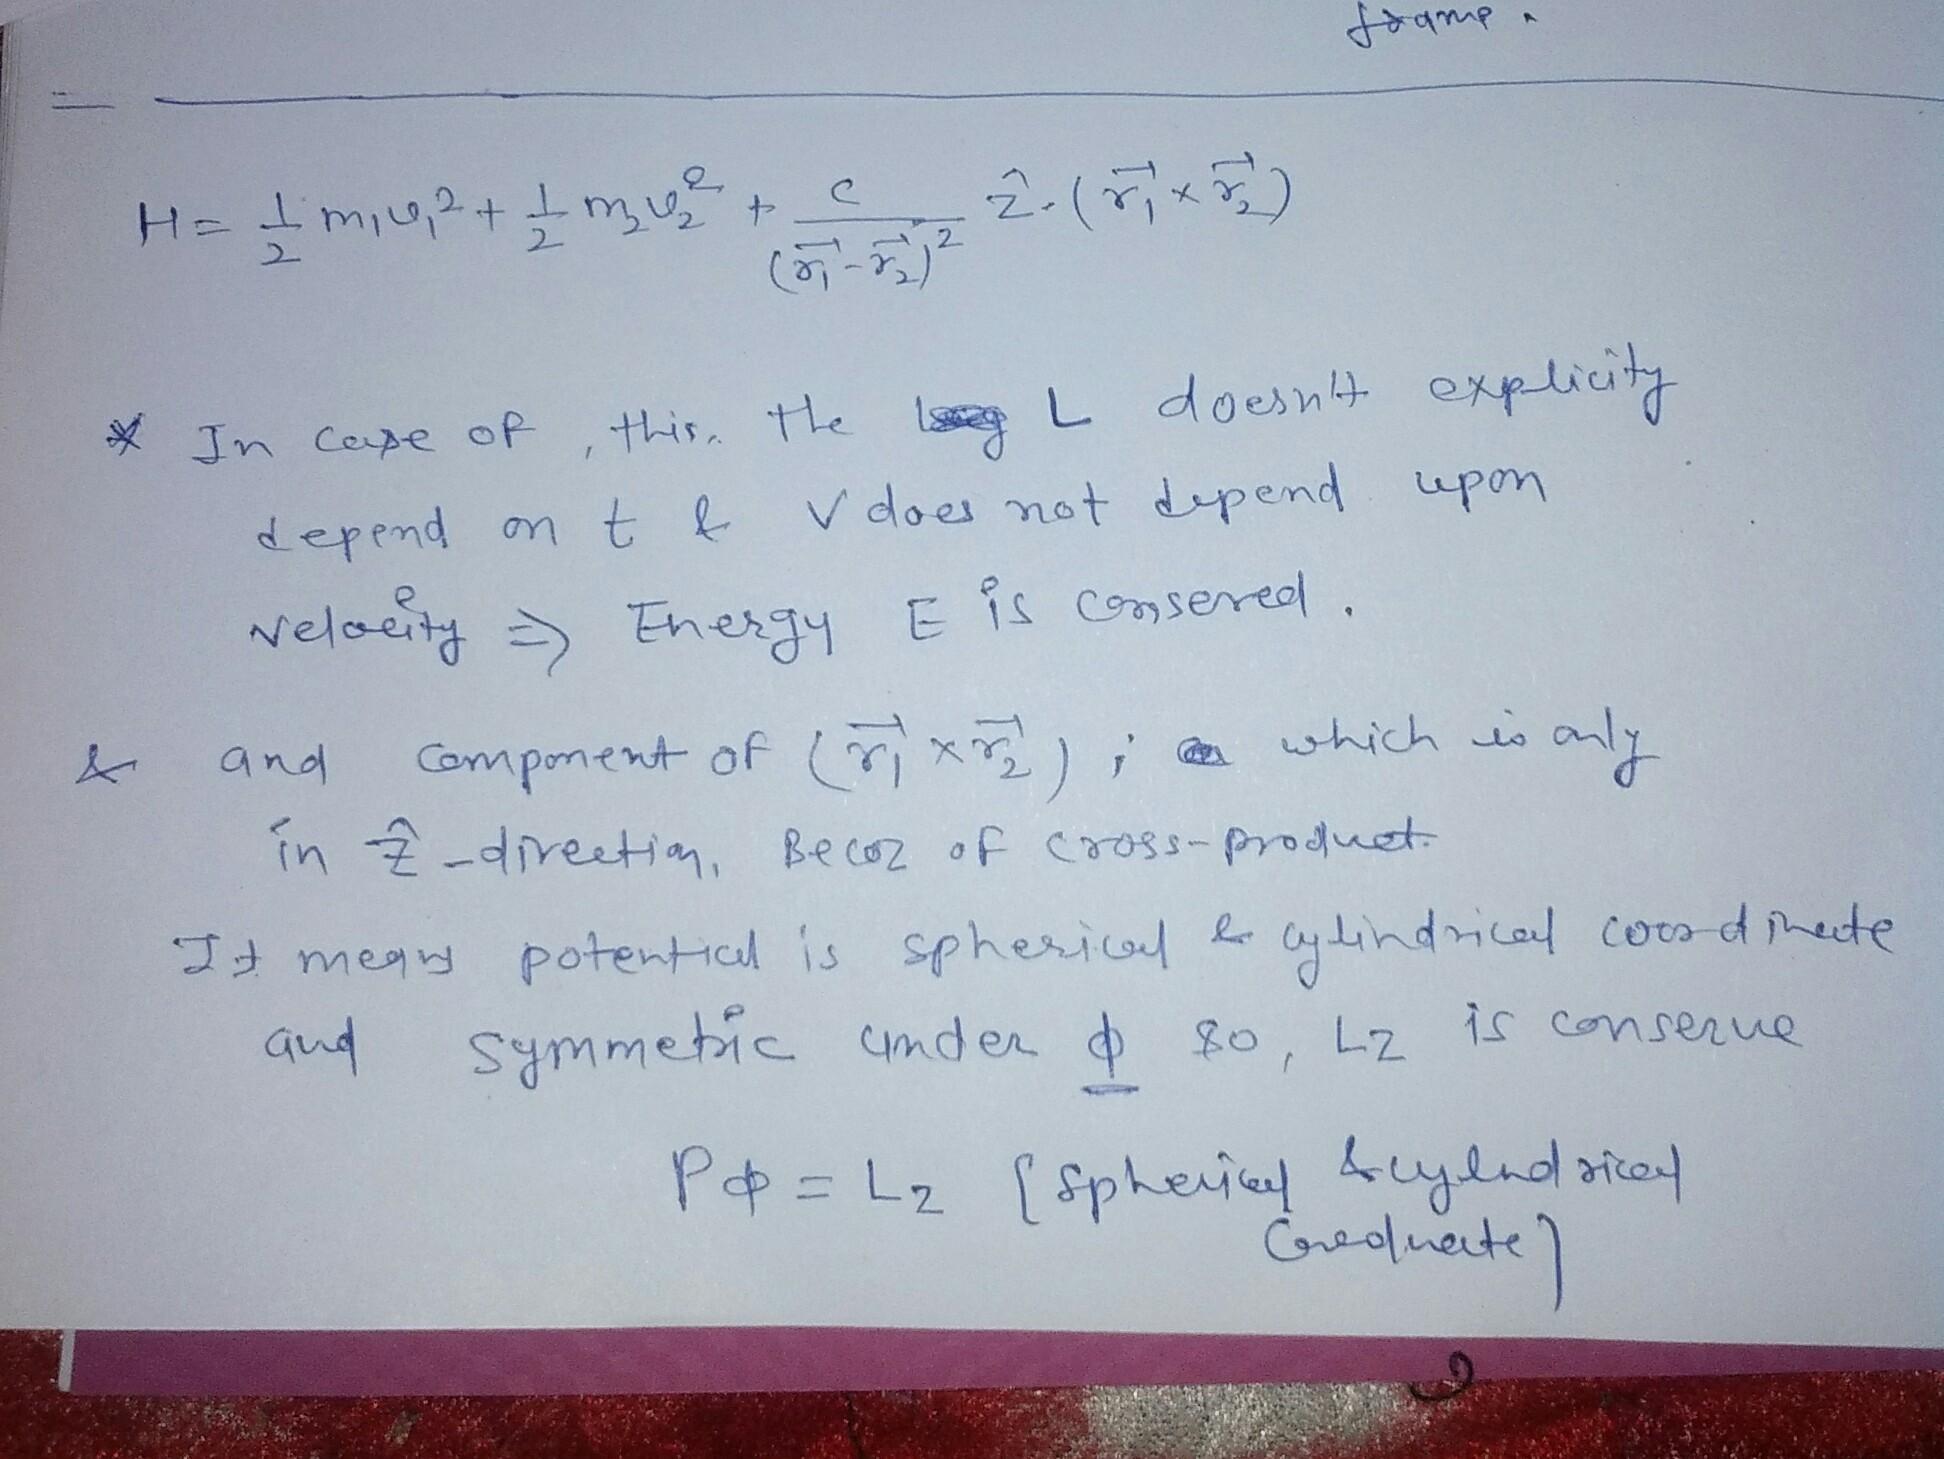 frame.
H = 1/2 m₁v₁² + 1/2 m₂v₂² + c/(r⃗₁-r⃗₂)² ẑ.(r⃗₁ × r⃗₂)
* In case of, this. the L doesn't explicity
depend on t & V does not depend upon
velocity ⇒ Energy E is consered.
& and component of (r⃗₁ × r⃗₂); which is only
in ẑ-direction, Becoz of cross-product.
It means potential is spherical & cylindrical coordinate
and symmetric under ϕ so, Lz is conserve
Pϕ = Lz [spherical & cylindrical
Coordinate]